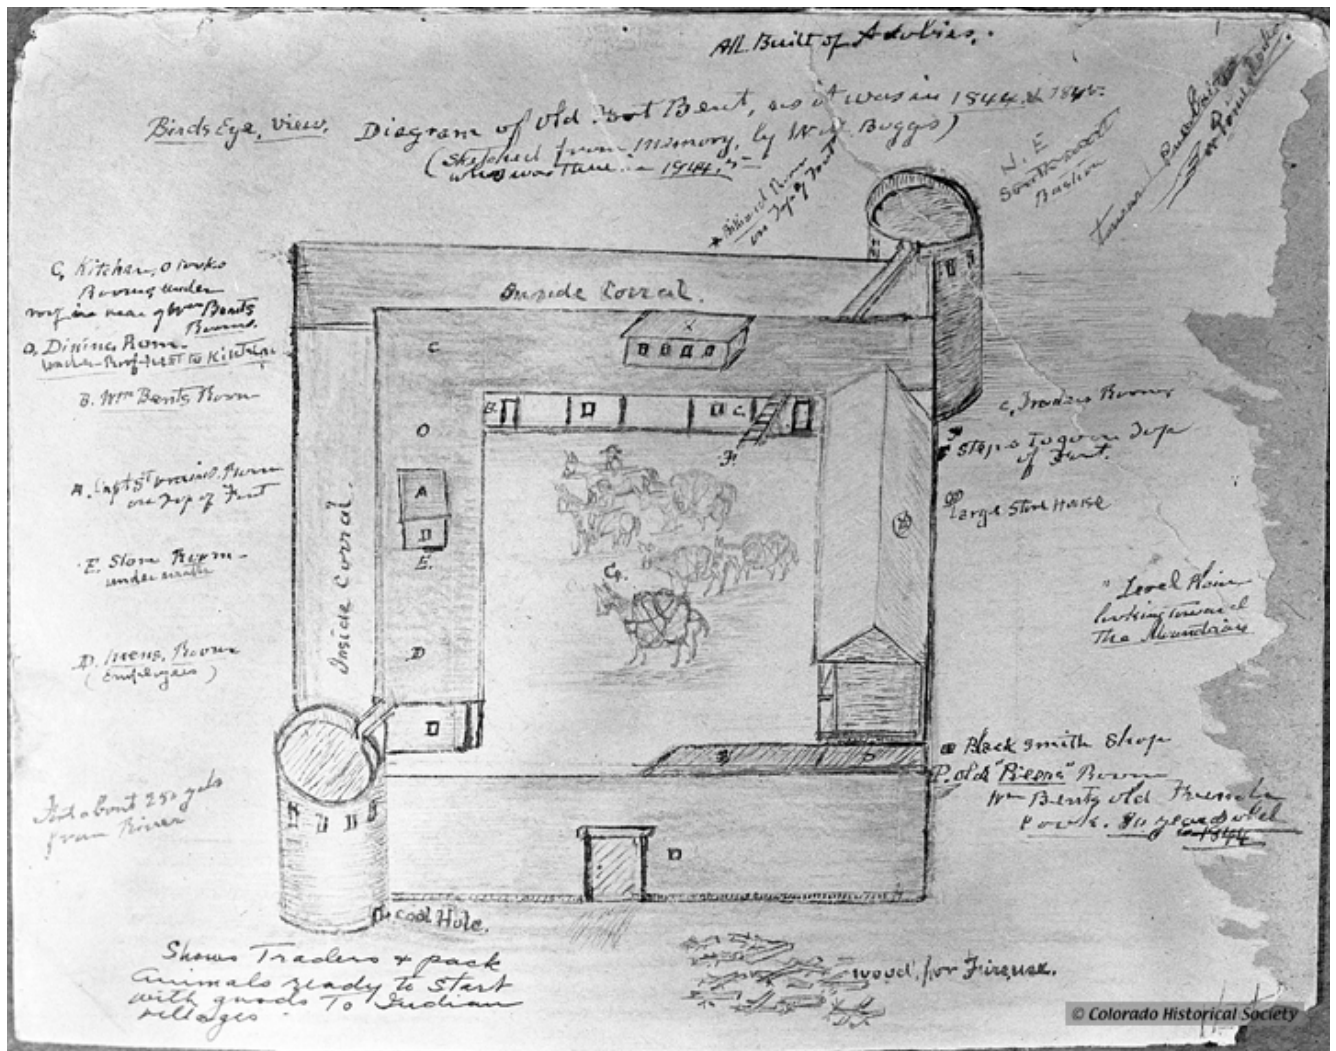 All Built of Adobies.
Birds Eye, View. Diagram of old Fort Bent, as it was in 1844 & 1845.
(Sketched from Memory, by W M Boggs)
who was there in 1844, 5
Billiard Room
on Top of Fort
N. E
Bastion
toward
Inside Corral.
C, Kitchen,
Rooms under
roof in rear of Wm Bents
Rooms.
O, Dining Room.
under Roof next to Kitchen
B. Wm Bents Room
A. Capt St Room
on Top of Fort
E. Store Room
under neath
D. Mens, Rooms
(Employees)
Fort about 250 yds
from River
X
C
O
A
E.
D
B.
C.
F.
G.
Inside Corral.
c, Traders Rooms
F Steps to go on Top
of Fort.
Large Store House
Level Plain
looking toward
The Mountains
Black smith Shop
P. old "Room
Wm Bents old French
Cook. 80 years old
1844
coal Hole.
wood for Fireuse.
Shows Traders & pack
animals ready to Start
with goods To Indian
villages
© Colorado Historical Society